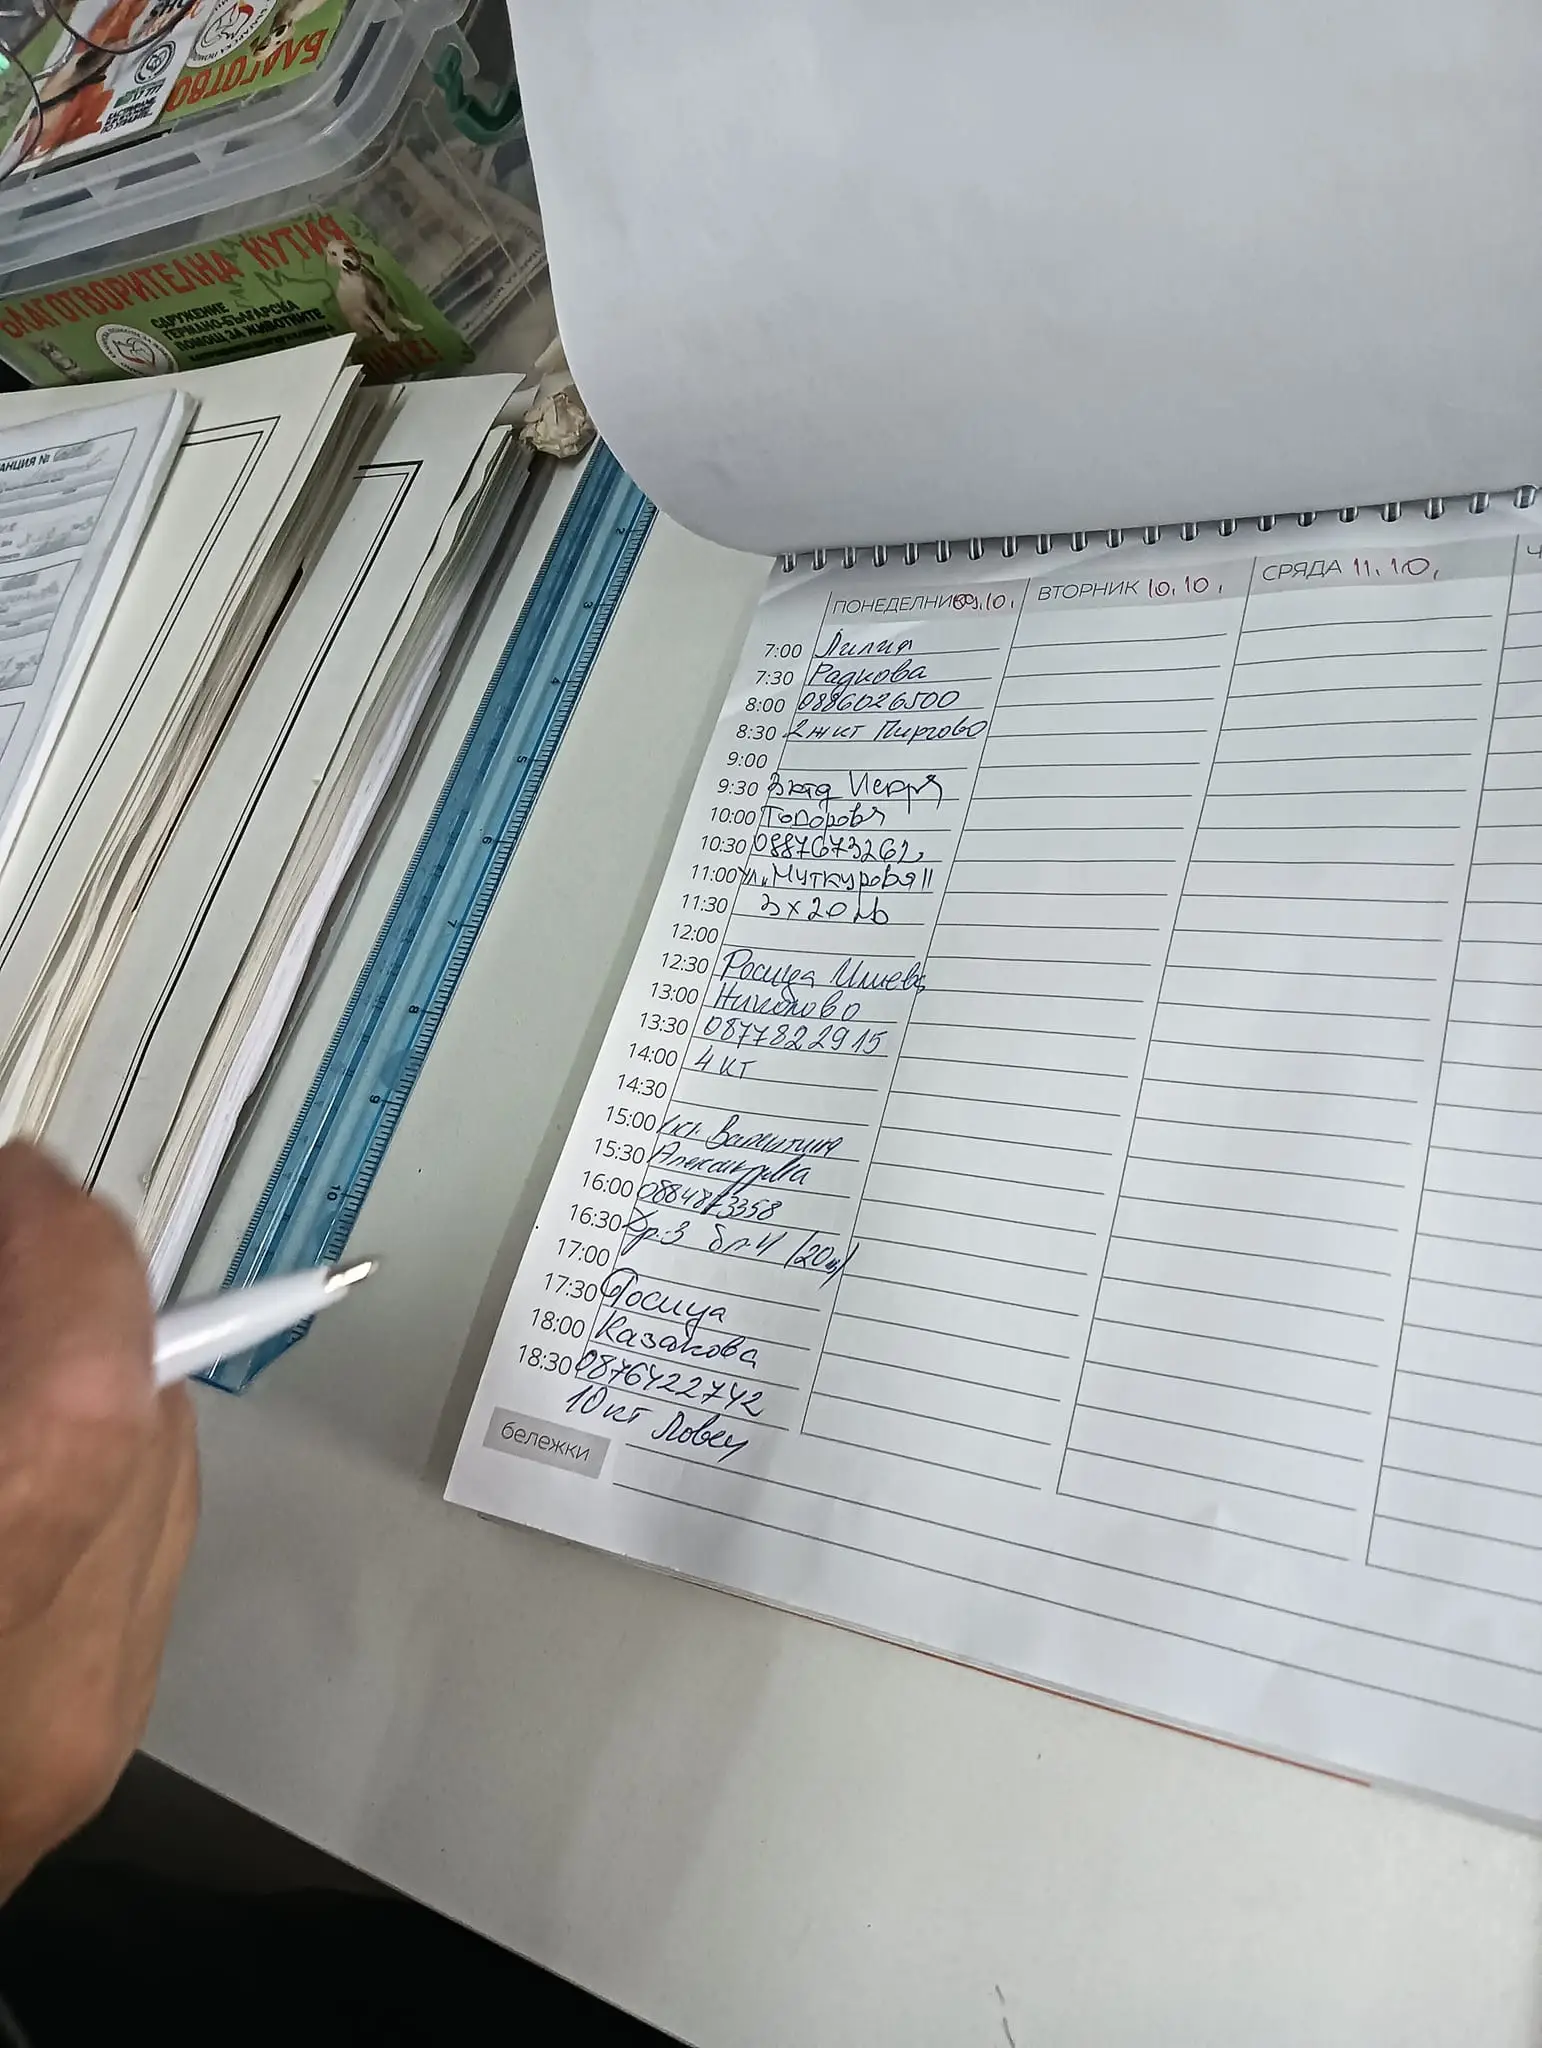 БЛАГОТВО
БЛАГОТВОРИТЕЛНА КУТИЯ
СДРУЖЕНИЕ
ГЕРМАНО-БЪЛГАРСКА
ПОМОЩ ЗА ЖИВОТНИТЕ
АНЦИЯ №
2
3
4
5
6
7
8
9
10
ПОНЕДЕЛНИК 09.10.
ВТОРНИК 10.10.
СРЯДА 11.10.
Ч
7:00 Лилия
7:30 Радкова
8:00 0886026500
8:30 2 ж кт Пиргово
9:00
9:30 3 ктд Искря
10:00 Тодоровя
10:30 0887673262,
11:00 ул. Муткуровя 11
11:30 3 x 20 лв
12:00
12:30 Росица Илиева
13:00 Николово
13:30 0877822915
14:00 4 кт
14:30
15:00 1 кт. Валентина
15:30 Александрова
16:00 0884873358
16:30 Др. 3 бл. 4 (20лв)
17:00
17:30 Росица
18:00 Казакова
18:30 0876422742
10 кт Ловец
бележки